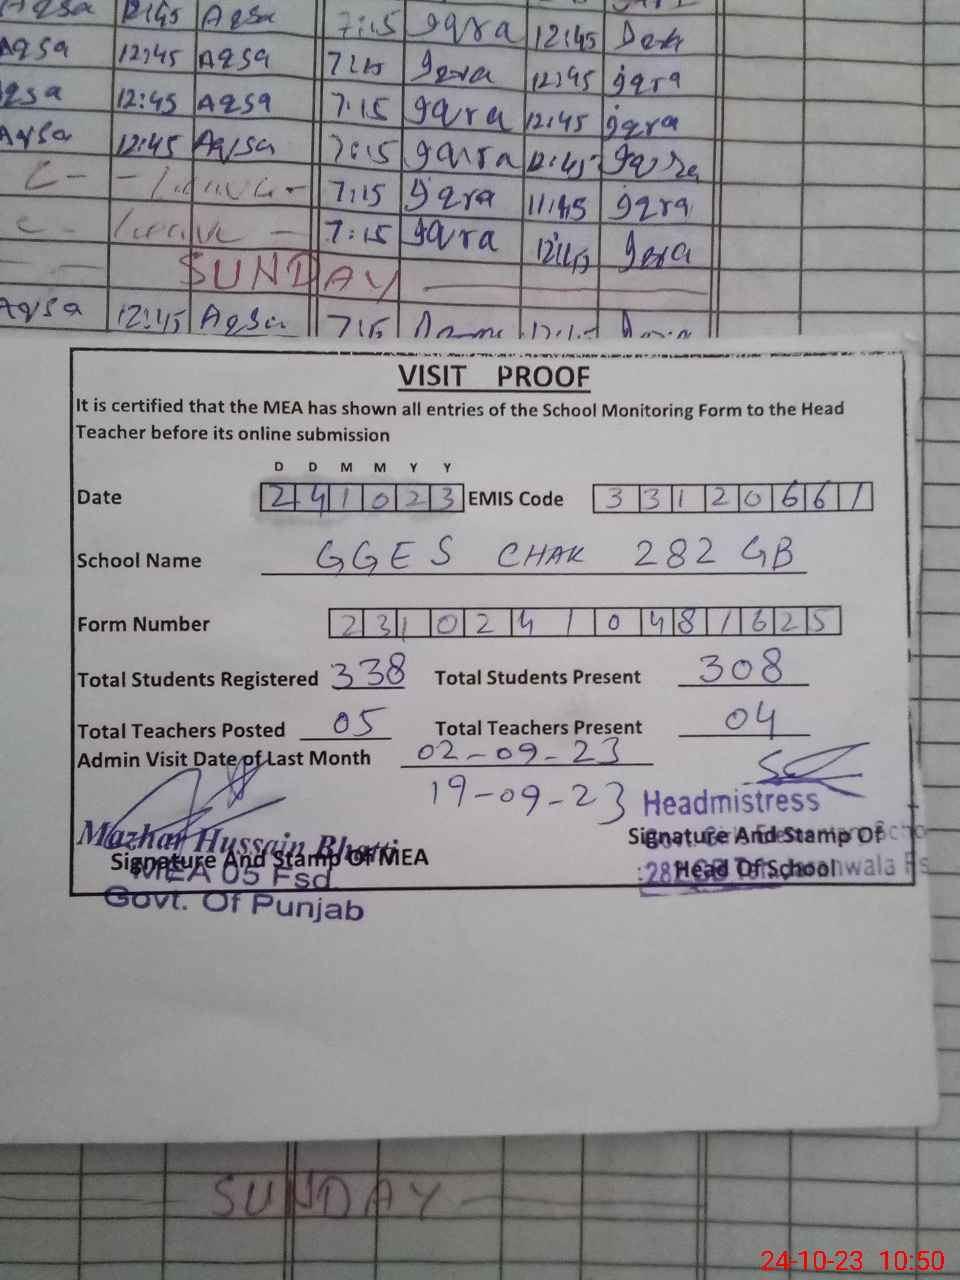 Aqsa 12:45 Aqsa 7:15 Iqra 12:45
Aqsa 12:45 Aqsa 7:15 Iqra 12:45 Iqra
Aqsa 12:45 Aqsa 7:15 Iqra 12:45 Iqra
Aqsa 12:45 Aqsa 7:15 Iqra 12:45 Iqra
C- - Leave - 7:15 Iqra 11:45 Iqra
C- Leave - 7:15 Iqra 12:45 Iqra
SUNDAY
Aqsa 12:45 Aqsa 7:15
VISIT PROOF
It is certified that the MEA has shown all entries of the School Monitoring Form to the Head
Teacher before its online submission
D D M M Y Y
Date 241023 EMIS Code 33120661
School Name GGES CHAK 282 GB
Form Number 23102410481625
Total Students Registered 338 Total Students Present 308
Total Teachers Posted 05 Total Teachers Present 04
Admin Visit Date of Last Month 02-09-23
19-09-23
Headmistress
Mazhar Hussain Bhatti
Signature And Stamp Of
Signature And Stamp Of MEA
Head Of School
MEA 05 Fsd
Govt. Of Punjab
SUNDAY
24-10-23 10:50